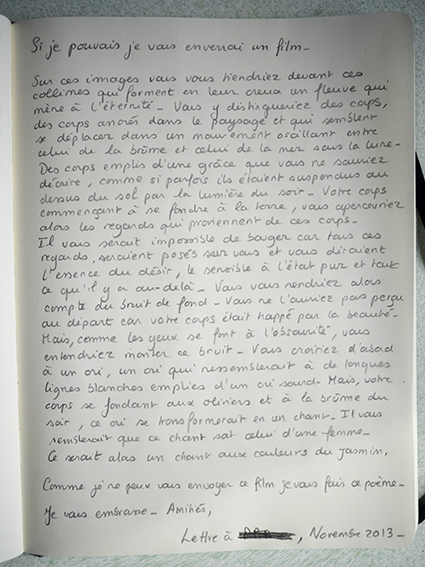 Si je pouvais je vous enverrai un film_
Sur ces images vous vous tiendriez devant ces
collines qui forment en leur creux un fleuve qui
mène à l'éternité_ Vous y distingueriez des corps,
des corps ancrés dans le paysage et qui semblent
se déplacer dans un mouvement oscillant entre
celui de la brûme et celui de la mer sous la lune_
Des corps emplis d'une grâce que vous ne sauriez
décrire, comme si parfois ils étaient suspendus au
dessus du sol par la lumière du soir_ Votre corps
commençant à se fondre à la terre, vous apercevriez
alors les regards qui proviennent de ces corps_
Il vous serait impossible de bouger car tous ces
regards, seraient posés sur vous et vous diraient
l'essence du désir, le sensible à l'état pur et tout
ce qu'il y a au-delà_ Vous vous rendriez alors
compte du bruit de fond_ Vous ne l'auriez pas perçu
au départ car votre corps était happé par la beauté_
Mais, comme les yeux se font à l'obscurité, vous
entendriez monter ce bruit_ Vous croiriez d'abord
à un cri, un cri qui ressemblerait à de longues
lignes blanches emplies d'un cri sourd_ Mais, votre
corps se fondant aux oliviers et à la brûme du
soir, ce cri se transformerait en un chant_ Il vous
semblerait que ce chant soit celui d'une femme_
Ce serait alors un chant aux couleurs du jasmin.
Comme je ne peux vous envoyer ce film je vous fais ce poème_
Je vous embrasse_ Amitiés,
Lettre à , Novembre 2013_